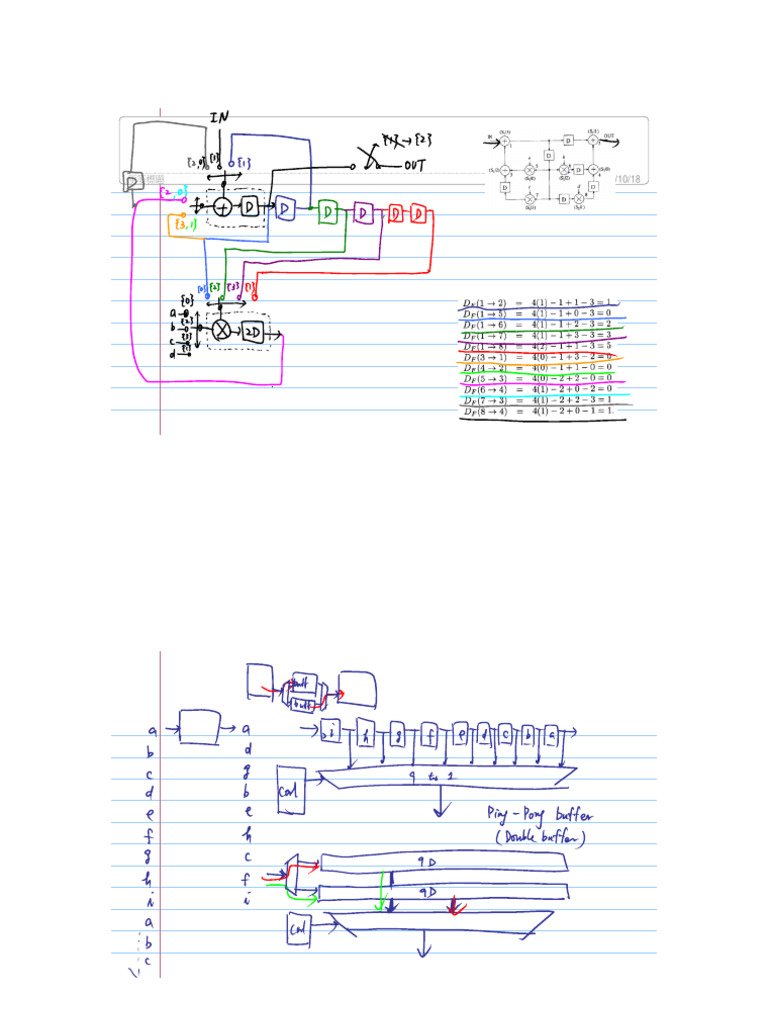 IN
{2,0}
{3}
{1}
{4} → {2}
OUT
D
標題
/10/18
{2,0}
{3,1}
+ D D D D D D
{0}
{0} {2} {3} {1}
a
b {2}
c {3}
d {1}
× 2D
IN
D
D_F(1 → 2) = 4(1) − 1 + 1 − 3 = 1
D_F(1 → 5) = 4(1) − 1 + 0 − 3 = 0
D_F(1 → 6) = 4(1) − 1 + 2 − 3 = 2
D_F(1 → 7) = 4(1) − 1 + 3 − 3 = 3
D_F(1 → 8) = 4(2) − 1 + 1 − 3 = 5
D_F(3 → 1) = 4(0) − 1 + 3 − 2 = 0
D_F(4 → 2) = 4(0) − 1 + 1 − 0 = 0
D_F(5 → 3) = 4(0) − 2 + 2 − 0 = 0
D_F(6 → 4) = 4(1) − 2 + 0 − 2 = 0
D_F(7 → 3) = 4(1) − 2 + 2 − 3 = 1
D_F(8 → 4) = 4(1) − 2 + 0 − 1 = 1.
buff
buff
a → → a
b d
c g
d b
e e
f h
g c
h f
i i
a
b
c
i h g f e d c b a
9 to 1
Ping-Pong buffer
(Double buffer)
9D
9D